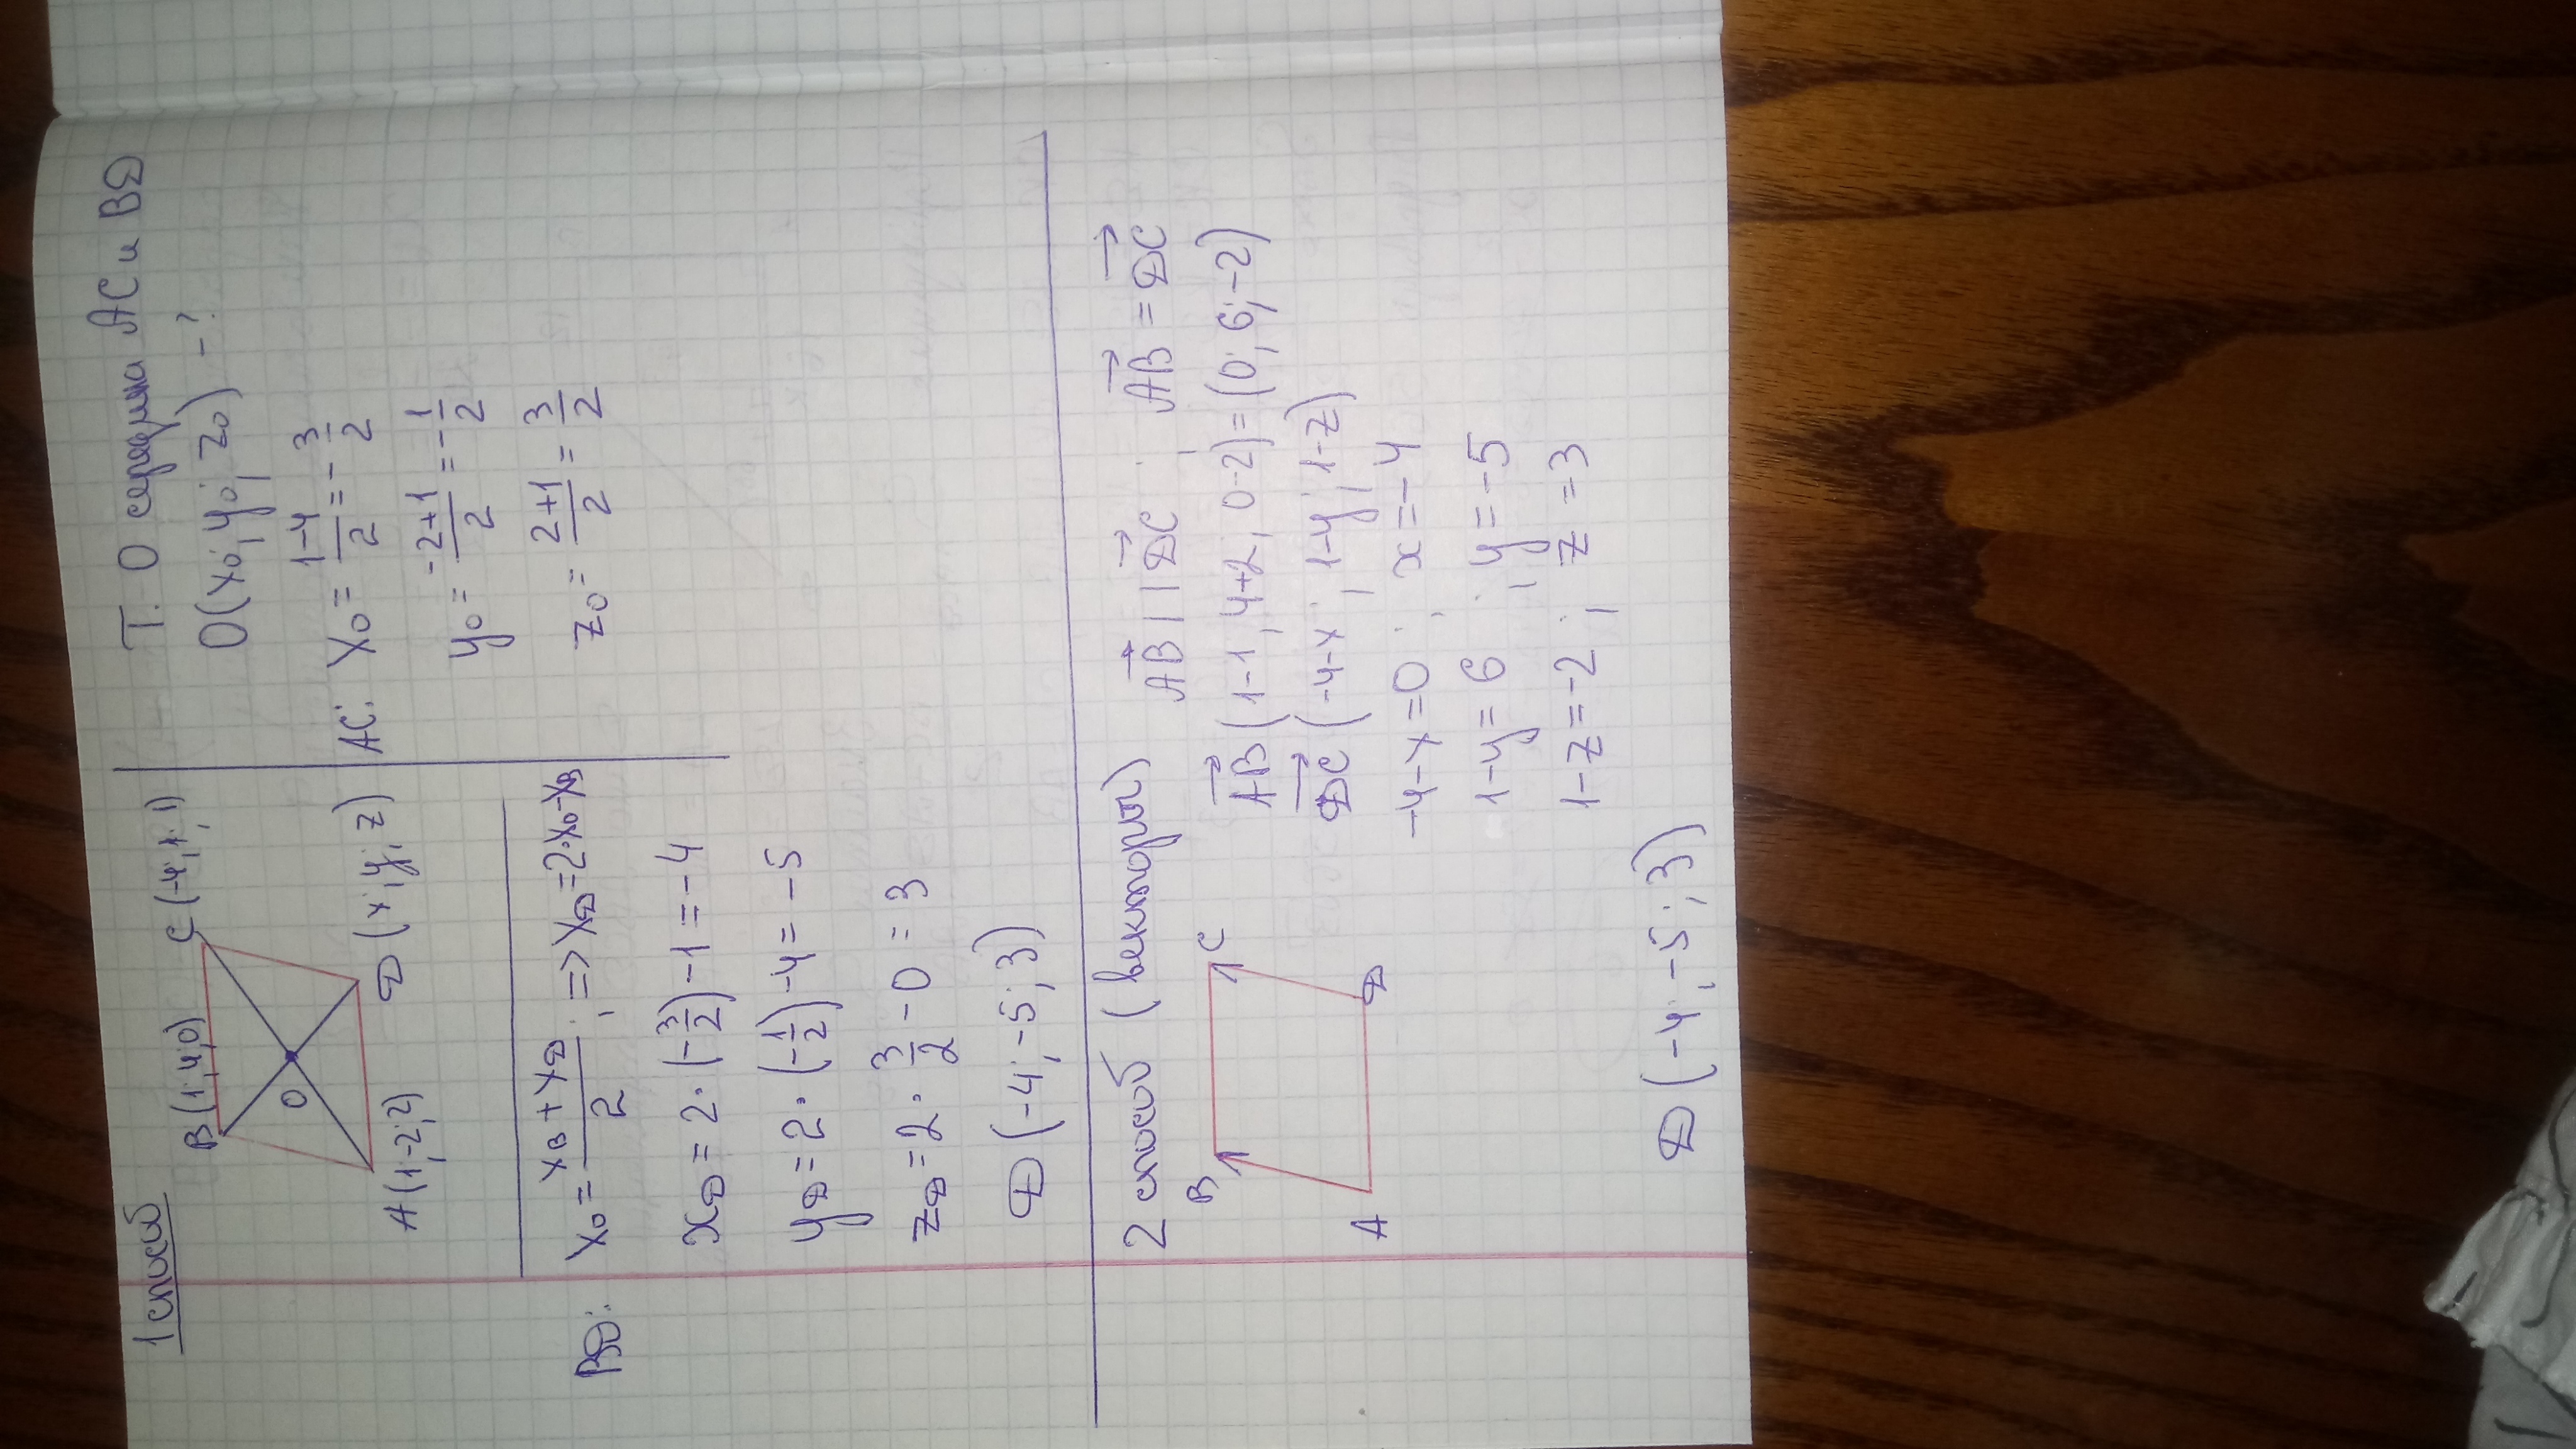 1 способ
B (1; 4; 0)
C (-4; 1; 1)
O
A (1; -2; 2)
D (x; y; z)
Т. О середина AC и BD
O(x₀; y₀; z₀) - ?
AC: x₀ = \frac{1-4}{2} = -\frac{3}{2}
y₀ = \frac{-2+1}{2} = -\frac{1}{2}
z₀ = \frac{2+1}{2} = \frac{3}{2}
BD: x₀ = \frac{x_B + x_D}{2}; => x_D = 2·x₀-x_B
x_D = 2·(-\frac{3}{2})-1 = -4
y_D = 2·(-\frac{1}{2})-4 = -5
z_D = 2·\frac{3}{2} - 0 = 3
D (-4; -5; 3)
2 способ (векторы)
B
C
A
D
\vec{AB} || \vec{DC}; \vec{AB} = \vec{DC}
\vec{AB} (1-1; 4+2; 0-2) = (0; 6; -2)
\vec{DC} (-4-x; 1-y; 1-z)
-4-x=0; x=-4
1-y=6; y=-5
1-z=-2; z=3
D (-4; -5; 3)